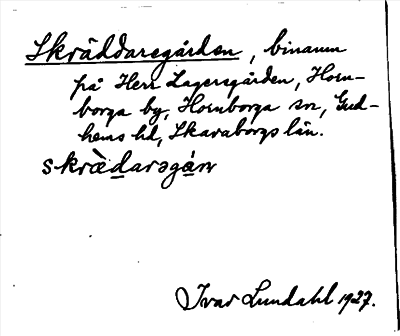 Skräddaregården, binamn
på Herr Lagersgården, Horn-
borga by, Hornborga sn, Gud-
hems hd, Skaraborgs län.
skrædarəgán
Ivar Lundahl 1927.